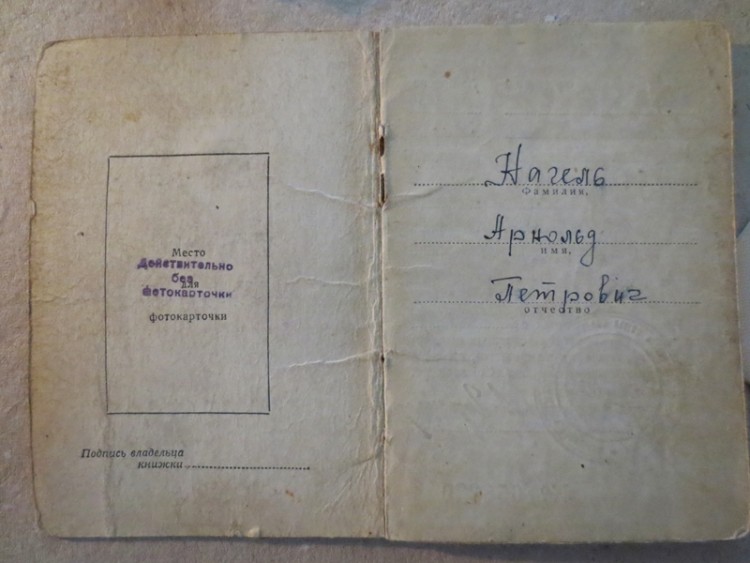 Место
Действительно
без
для
фотокарточки
фотокарточки
Подпись владельца
книжки
Нагель
Фамилия,
Арнольд
имя,
Петрович
отчество